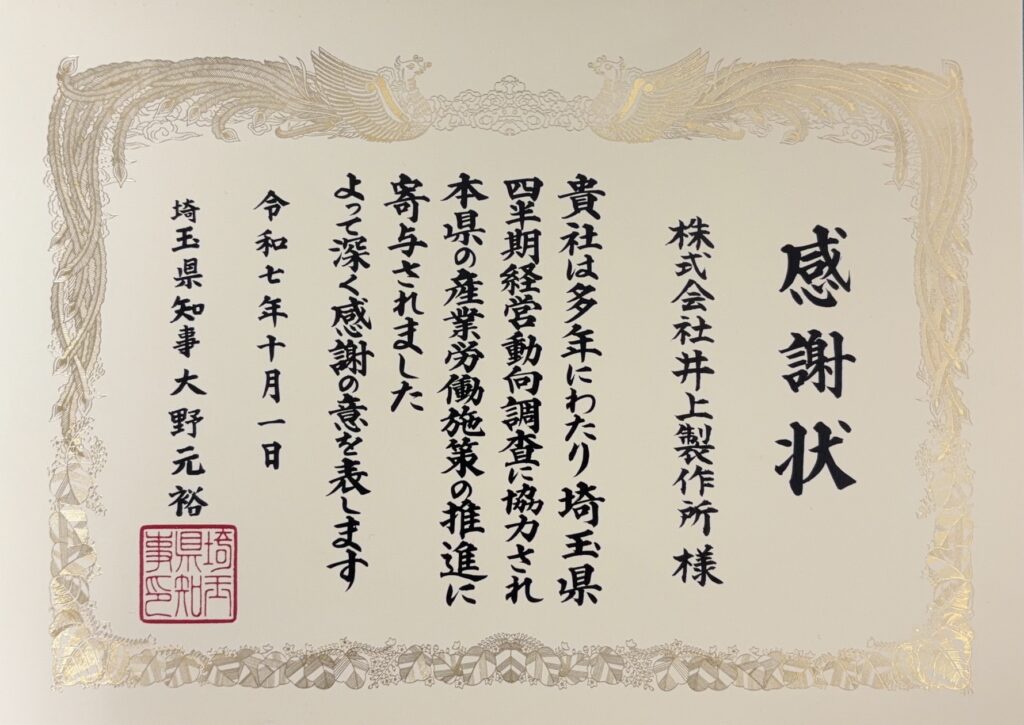 感謝状
株式会社井上製作所 様
貴社は多年にわたり埼玉県
四半期経営動向調査に協力され
本県の産業労働施策の推進に
寄与されました
よって深く感謝の意を表します
令和七年十月一日
埼玉県知事 大野元裕
埼玉
県知
事印